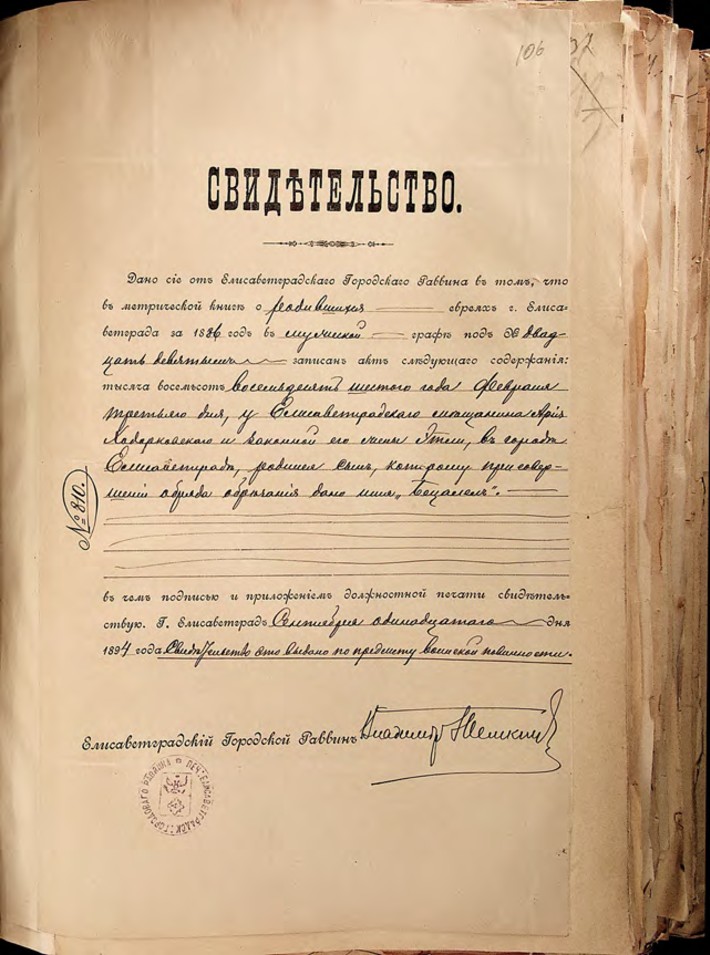 106 32
СВИДѢТЕЛЬСТВО.
Дано сіе отъ Елисаветградскаго Городскаго Раввина въ томъ, что
въ метрической книгѣ о родившихся евреяхъ г. Елиса-
ветграда за 1886 годъ въ мужской графѣ подъ № двад-
цать девятымъ записанъ актъ слѣдующаго содержанія:
тысяча восемьсотъ восемьдесятъ шестого года Февраля
третьяго дня, у Елисаветградскаго мѣщанина Арія
Ходорковскаго и законной его жены Этели, въ городѣ
Елисаветградѣ, родился сынъ, которому при совер-
шеніи обряда обрѣзанія дано имя „Бецалель".
№ 810.
въ чемъ подписью и приложеніемъ должностной печати свидѣтель-
ствую. Г. Елисаветградъ Сентября одинадцатаго дня
1894 года Свидѣтельство это выдано по предмету воинской повинности.
Елисаветградскій Городской Раввинъ Владимір